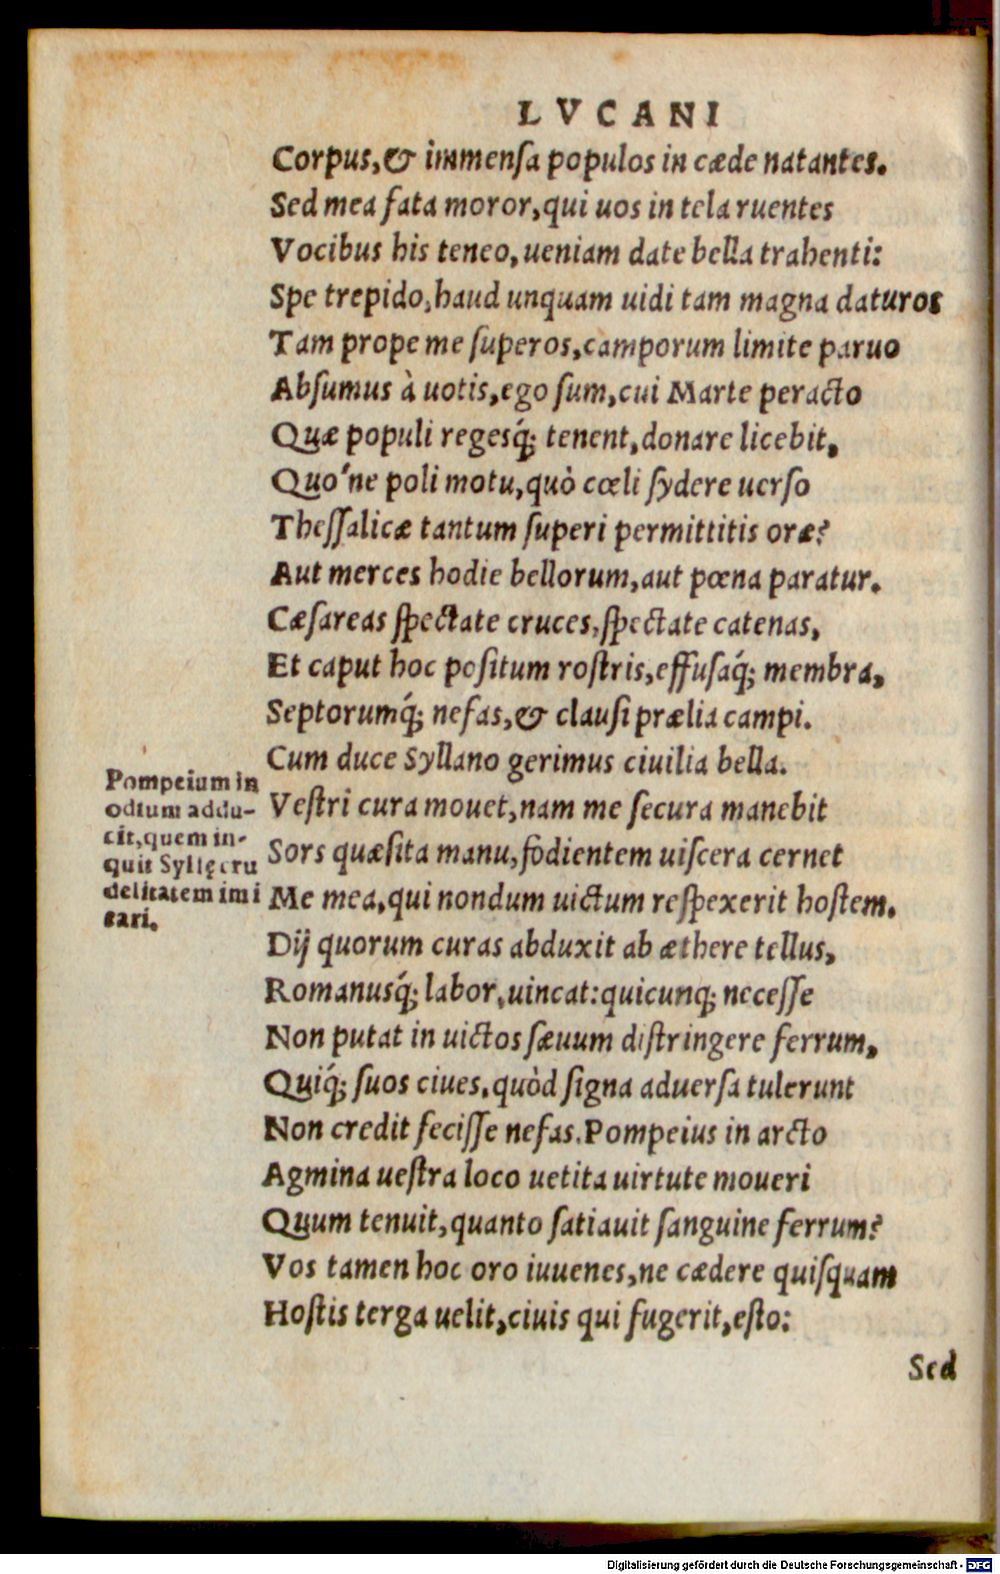 LVCANI
Corpus,& immensa populos in cæde natantes.
Sed mea fata moror,qui uos in tela ruentes
Vocibus his teneo,ueniam date bella trahenti:
Spe trepido,haud unquam uidi tam magna daturos
Tam prope me ſuperos,camporum limite paruo
Abſumus à uotis,ego ſum,cui Marte peracto
Quæ populi regesq́; tenent,donare licebit,
Quo'ne poli motu,quò cœli ſydere uerſo
Theſſalicæ tantum ſuperi permittitis oræ?
Aut merces hodie bellorum,aut pœna paratur.
Cæſareas ſpectate cruces,ſpectate catenas,
Et caput hoc poſitum roſtris,effuſaq́; membra,
Septorumq́; nefas,& clauſi prælia campi.
Cum duce Syllano gerimus ciuilia bella.
Pompeium in
odium addu-
cit,quem in-
quit Syllę cru
delitatem imi
tari.
Veſtri cura mouet,nam me ſecura manebit
Sors quæſita manu,fodientem uiſcera cernet
Me mea,qui nondum uictum reſpexerit hoſtem.
Dij quorum curas abduxit ab æthere tellus,
Romanusq́; labor,uincat:quicunq; neceſſe
Non putat in uictos ſæuum diſtringere ferrum,
Quiq́; ſuos ciues,quòd ſigna aduerſa tulerunt
Non credit feciſſe nefas.Pompeius in arcto
Agmina ueſtra loco uetita uirtute moueri
Quum tenuit,quanto ſatiauit ſanguine ferrum?
Vos tamen hoc oro iuuenes,ne cædere quiſquam
Hoſtis terga uelit,ciuis qui fugerit,eſto:
Sed
Digitalisierung gefördert durch die Deutsche Forschungsgemeinschaft - DFG